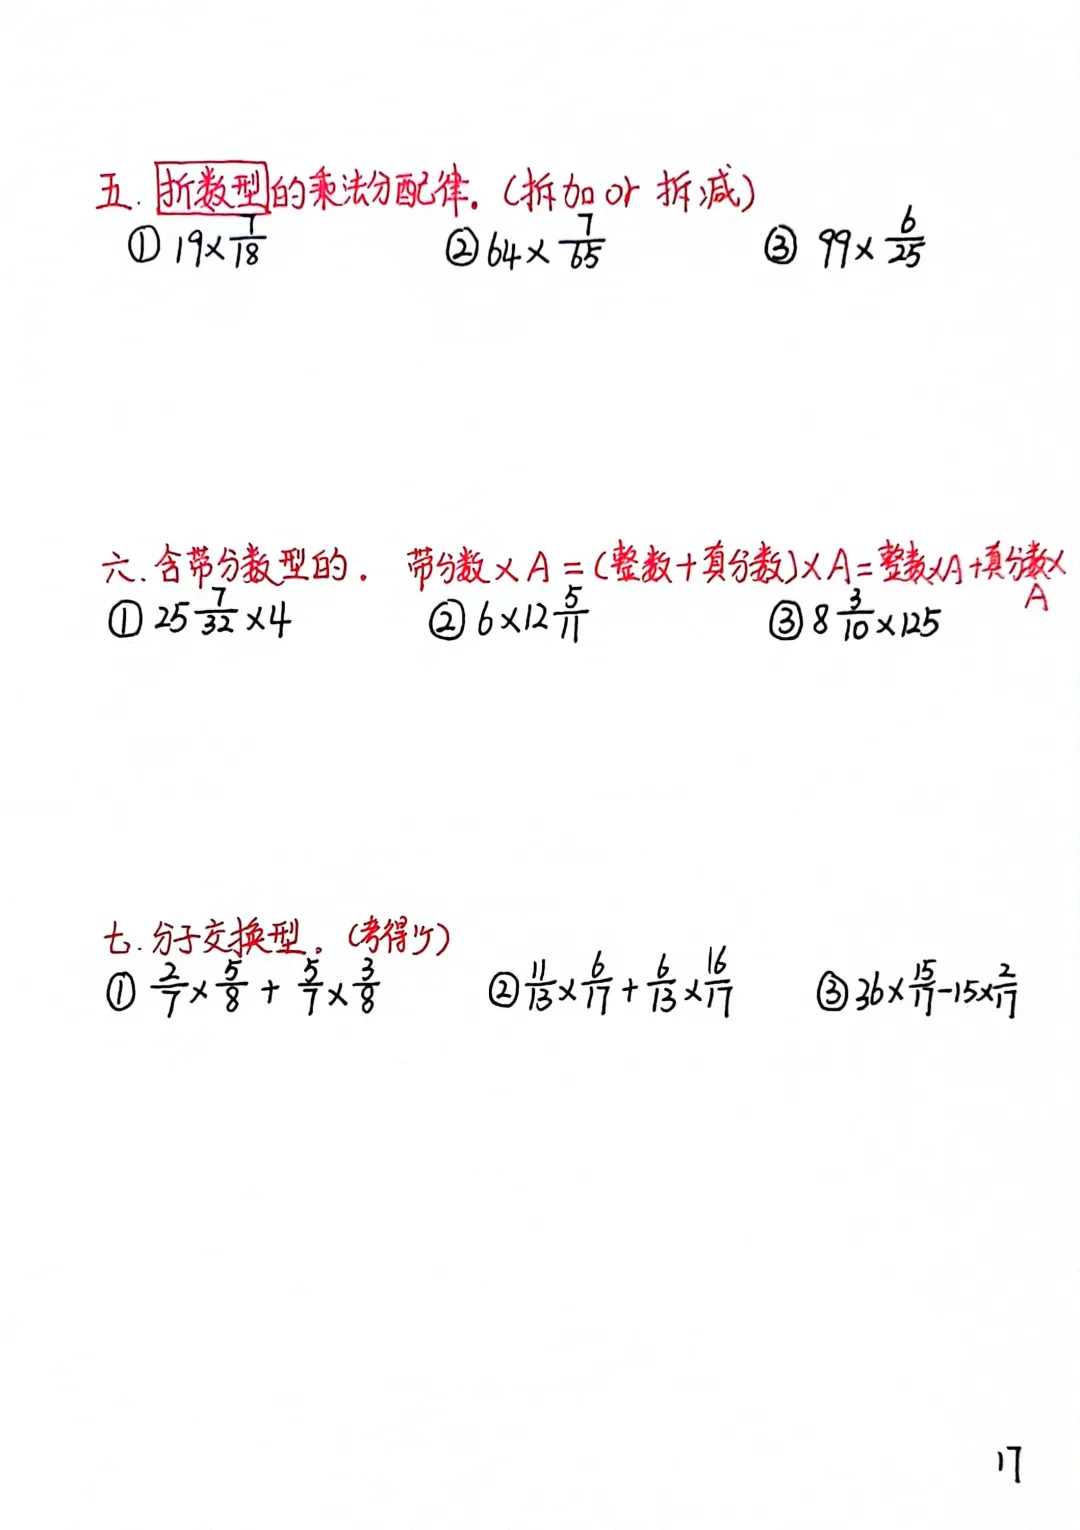 五. 拆数型的乘法分配律。(拆加 or 拆减)
① 19×7/18 ② 64×7/65 ③ 99×6/25
六. 含带分数型的. 带分数×A=(整数+真分数)×A=整数×A+真分数×A
① 25 7/32×4 ② 6×12 5/11 ③ 8 3/10×125
七. 分子交换型。(考得少)
① 2/7×5/8+5/7×3/8 ② 11/13×6/17+6/13×16/17 ③ 36×15/17-15×2/17
17